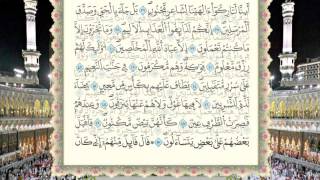 أَئِنَّا لَتَارِكُوا آلِهَتِنَا لِشَاعِرٍ مَّجْنُونٍ ۝ بَلْ جَاءَ بِالْحَقِّ وَصَدَّقَ
الْمُرْسَلِينَ ۝ إِنَّكُمْ لَذَائِقُو الْعَذَابِ الْأَلِيمِ ۝ وَمَا تُجْزَوْنَ إِلَّا
مَا كُنتُمْ تَعْمَلُونَ ۝ إِلَّا عِبَادَ اللَّهِ الْمُخْلَصِينَ ۝ أُولَٰئِكَ لَهُمْ
رِزْقٌ مَّعْلُومٌ ۝ فَوَاكِهُ وَهُم مُّكْرَمُونَ ۝ فِي جَنَّاتِ النَّعِيمِ ۝
عَلَىٰ سُرُرٍ مُّتَقَابِلِينَ ۝ يُطَافُ عَلَيْهِم بِكَأْسٍ مِّن مَّعِينٍ ۝ بَيْضَاءَ
لَذَّةٍ لِّلشَّارِبِينَ ۝ لَا فِيهَا غَوْلٌ وَلَا هُمْ عَنْهَا يُنزَفُونَ ۝ وَعِندَهُمْ
قَاصِرَاتُ الطَّرْفِ عِينٌ ۝ كَأَنَّهُنَّ بَيْضٌ مَّكْنُونٌ ۝ فَأَقْبَلَ
بَعْضُهُمْ عَلَىٰ بَعْضٍ يَتَسَاءَلُونَ ۝ قَالَ قَائِلٌ مِّنْهُمْ إِنِّي كَانَ